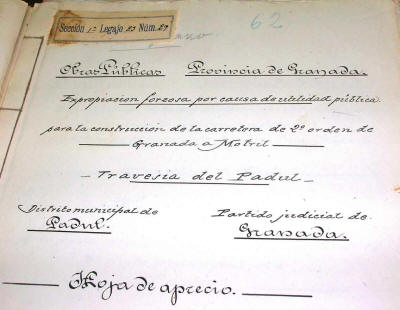 Sección 1ª Legajo 23 Núm. 27
62
Obras Públicas Provincia de Granada.
Expropiacion forzosa por causa de utilidad pública
para la construcción de la carretera de 2º orden de
Granada a Motril
Travesía del Padul
Distrito municipal de Partido judicial de
Padul. Granada.
Hoja de aprecio.